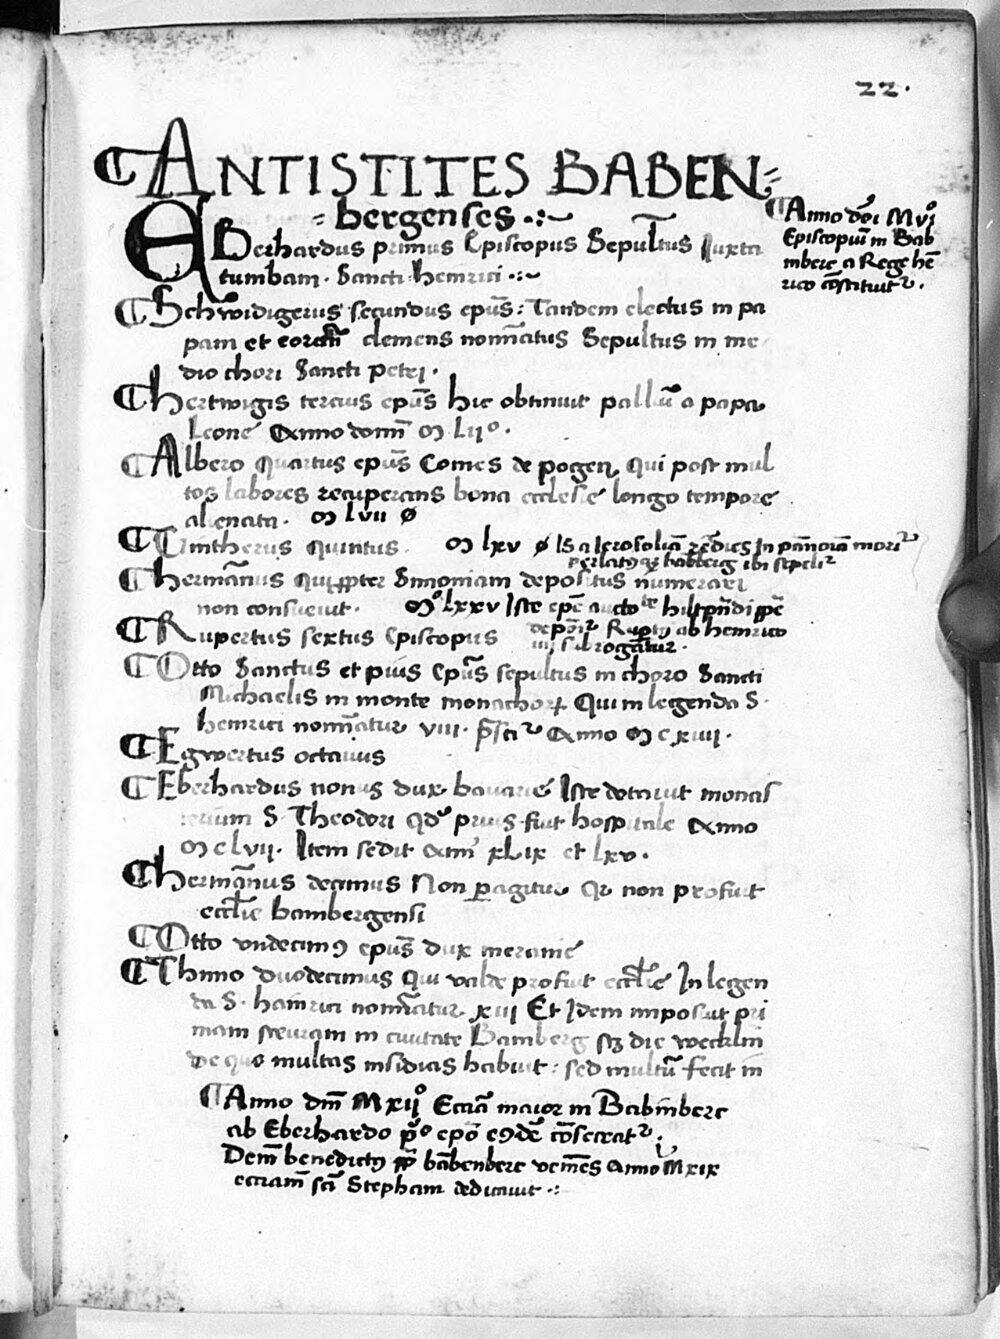 22.
ANTISTITES BABEN=
=bergenses
Anno dōi Mvıȷ
Episcopuū in Bab
inberc a Rege hē
rico cōstitutꝰ.
EBerhardus primus Episcopus Sepultus Juxta
tumbam Sancti heinrici
Schwidigerus secundus ep̄us: Tandem electus in pa
pam et eoram clemens nom̄atus Sepultus in me
dio chori Sancti petri.
hertwigis tercius ep̄us hic obtinuit palliū a papa
Leone Anno domī M Lijº.
Albero Quartus ep̄us Comes de pogen Qui post mul
tos labores recuperans bona ecclesie longo tempore
alienata. M lvii ø
Gintherus Quintus. M lxv ø Is a Ierosolimā rediēs In pānoniā morit
perlatꝰqꝫ babberg ibi sepelit
hermānus propter Simoniam depositus numerari
non consuevit. Mº lxxv Iste ep̄c
deponit Ruptꝰ ab hemrico
iiij subrogatur.
Rupertus sextus Episcopus
Otto Sanctus et pius Ep̄us sepultus in choro Sancti
Michaelis in monte monachorꝝ Qui in legenda S.
heinrici nom̄atur viii. Anno M c xiiij.
Egwertus octavus
Eberhardus nonus dux bavarie Iste dotavit monas
terium S. Theodori qđ prius fuit hospitale Anno
M c lvij. Item sedit Annī xLix et lxv.
hermānus decimus Non pagitur Qꝛ non profuit
eccl̄ie bambergensi
Otto undecimꝰ ep̄us dux meranie
Thimo duodecimus Qui valde profuit eccl̄ie In legen
da S. hainrici nom̄atur xiij Et Idem imposuit pri
mam steuram in civitate Bamberg sꝫ die wecklin
de quo multas insidias habuit: sed multū fecit in
Anno dm̄ Mxijº Eccīā maior in Babinberc
ab Eberhardo pº epō eiꝰdē cōsecratꝛ.
Dem̄ benedictꝰ pp̄ babenberc veniēs Anno Mxix
ecciam̄ sci Stephani dedicavit